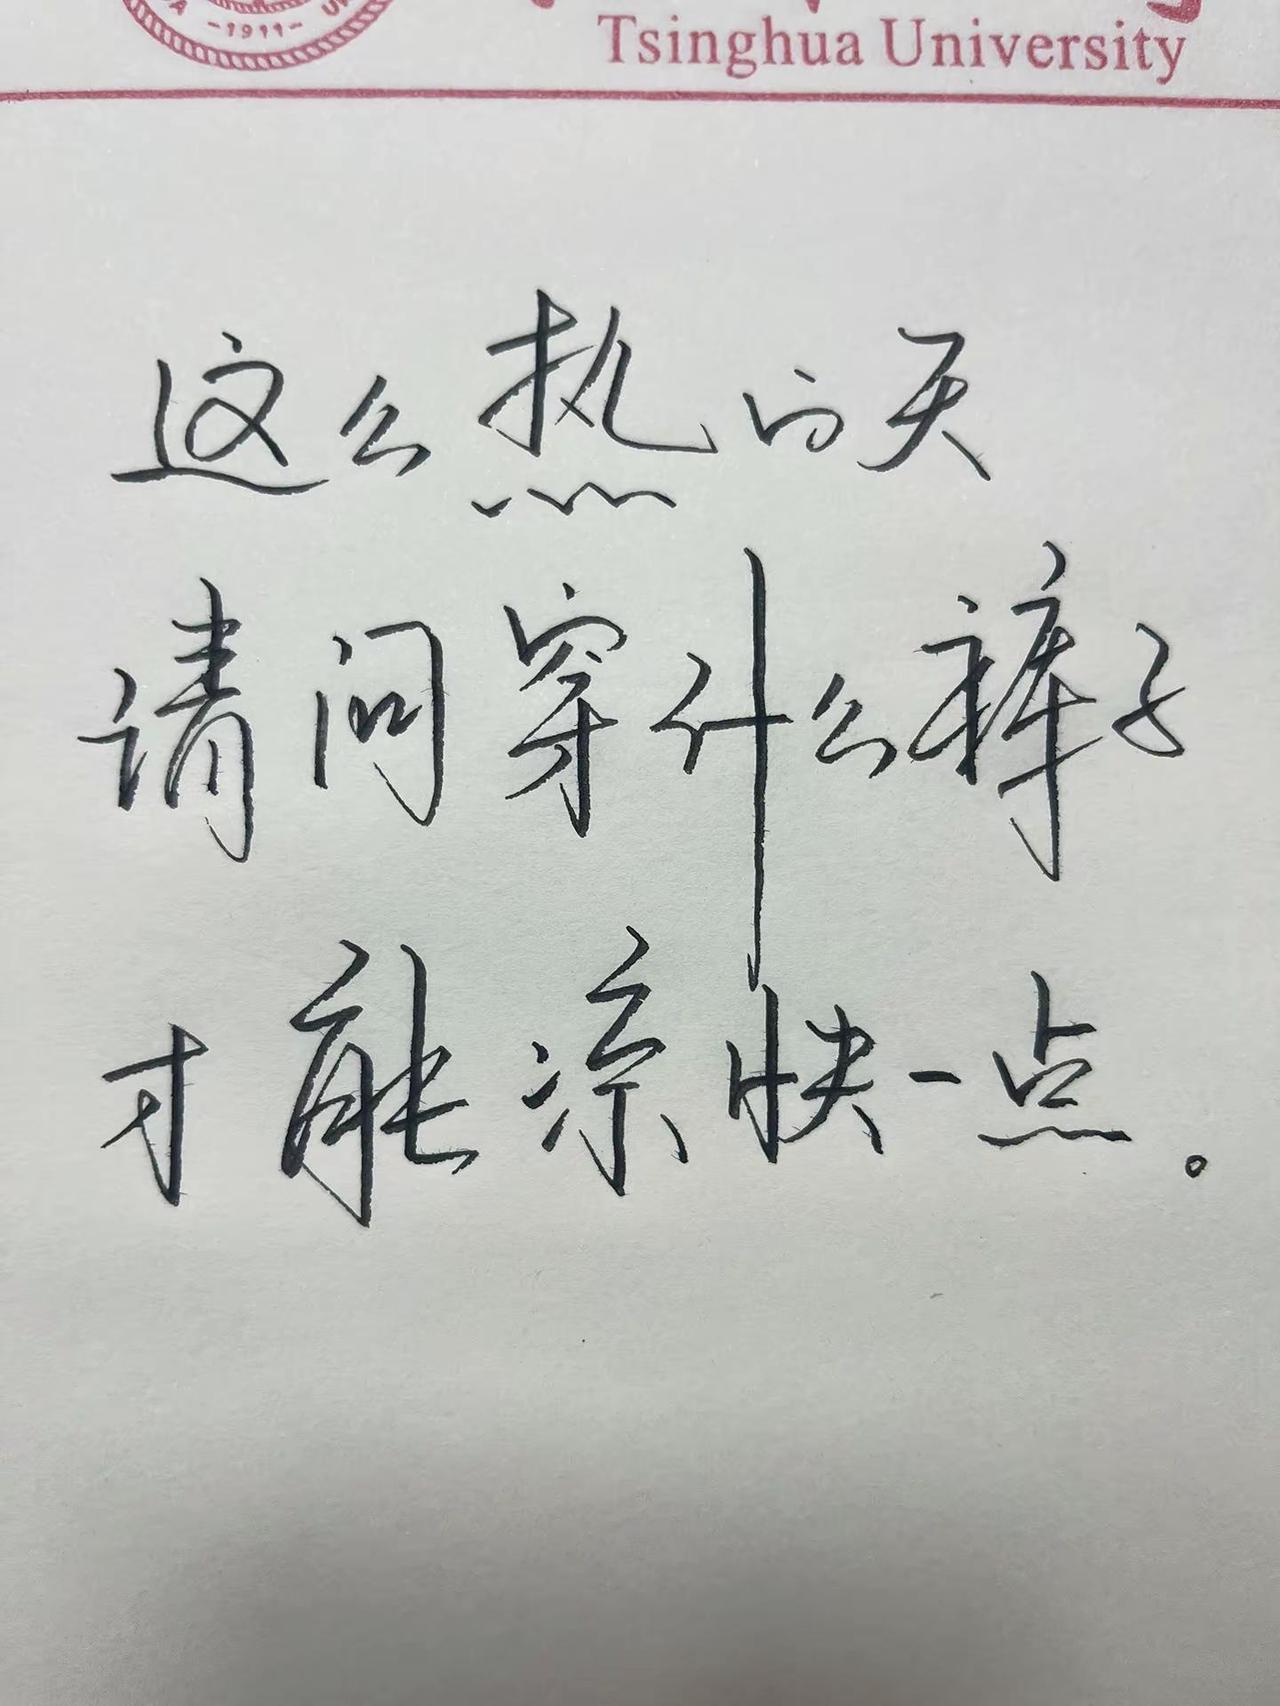 -1911-
Tsinghua University
这么热的天
请问穿什么裤子
才能凉快一点。